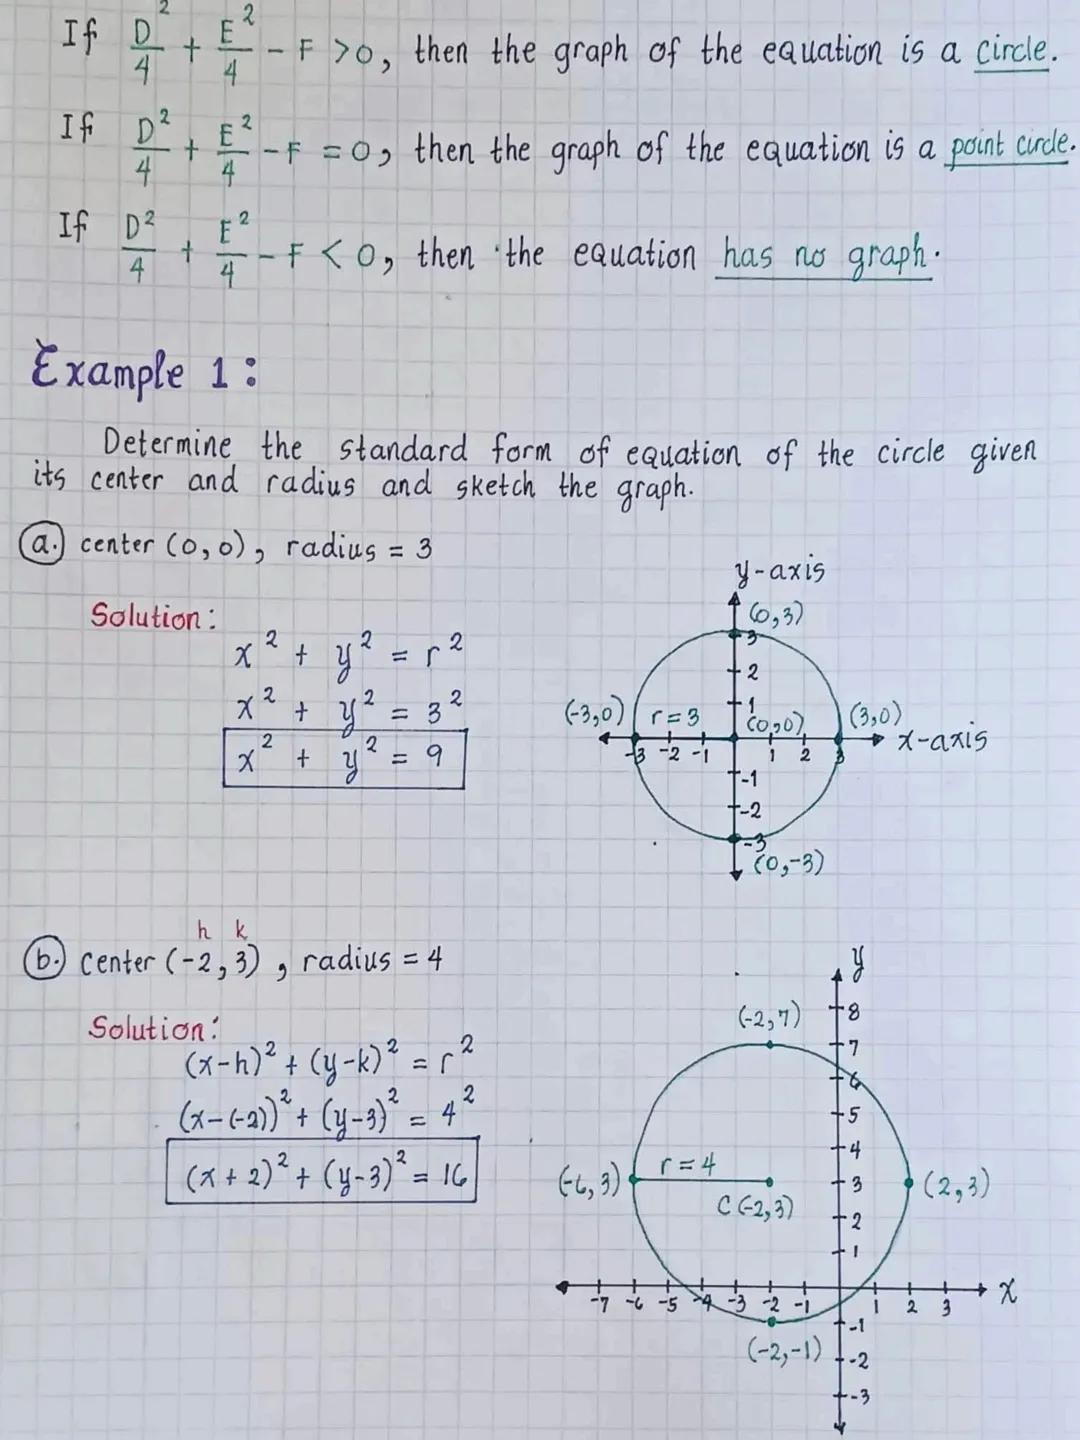 If D²/4 + E²/4 - F > 0, then the graph of the equation is a circle.
If D²/4 + E²/4 - F = 0, then the graph of the equation is a point circle.
If D²/4 + E²/4 - F < 0, then the equation has no graph.
Example 1:
Determine the standard form of equation of the circle given
its center and radius and sketch the graph.
a. center (0,0), radius = 3
Solution:
x² + y² = r²
x² + y² = 3²
x² + y² = 9
y-axis
(0,3)
3
2
1
(-3,0) r=3 (0,0) (3,0)
-3 -2 -1 1 2 3 x-axis
-1
-2
-3
(0,-3)
h k
b. center (-2,3), radius = 4
Solution:
(x-h)² + (y-k)² = r²
(x-(-2))² + (y-3)² = 4²
(x+2)² + (y-3)² = 16
y
8
(-2,7)
7
6
5
4
(-6,3) r=4 3 (2,3)
C(-2,3)
2
1
-7 -6 -5 -4 -3 -2 -1 1 2 3 x
-1
(-2,-1)
-2
-3